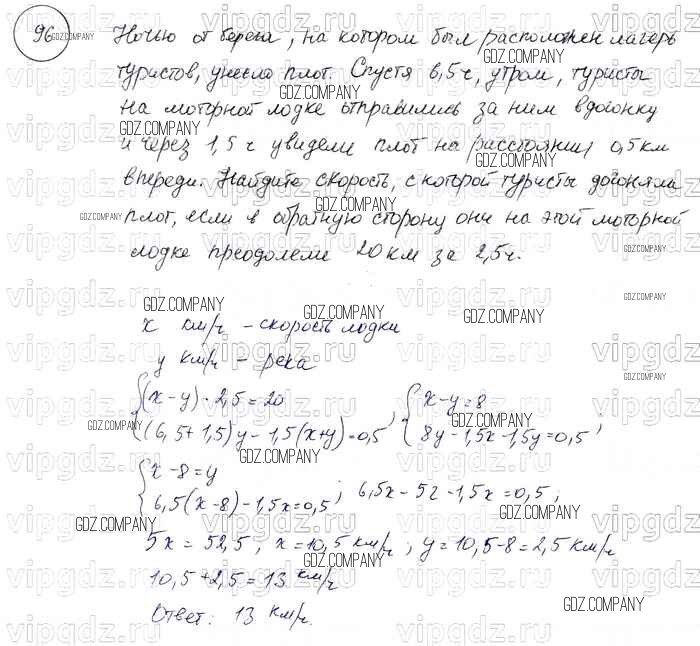 96
Ночью от берега, на котором был расположен лагерь
туристов, унесло плот. Спустя 6,5 ч, утром, туристы
на моторной лодке отправились за ним вдогонку
и через 1,5 ч увидели плот на расстоянии 0,5 км
впереди. Найдите скорость, с которой туристы догоняли
плот, если в обратную сторону они на этой моторной
лодке преодолели 20 км за 2,5 ч.
x км/ч - скорость лодки
y км/ч - река
{(x-y)·2,5=20
{(6,5+1,5)y-1,5(x+y)=0,5 ; {x-y=8
{8y-1,5x-1,5y=0,5 ;
{x-8=y
{6,5(x-8)-1,5x=0,5 ; 6,5x-52-1,5x=0,5 ;
5x=52,5 ; x=10,5 км/ч ; y=10,5-8=2,5 км/ч
10,5+2,5=13 км/ч
Ответ: 13 км/ч.
GDZ.COMPANY
vipgdz.ru